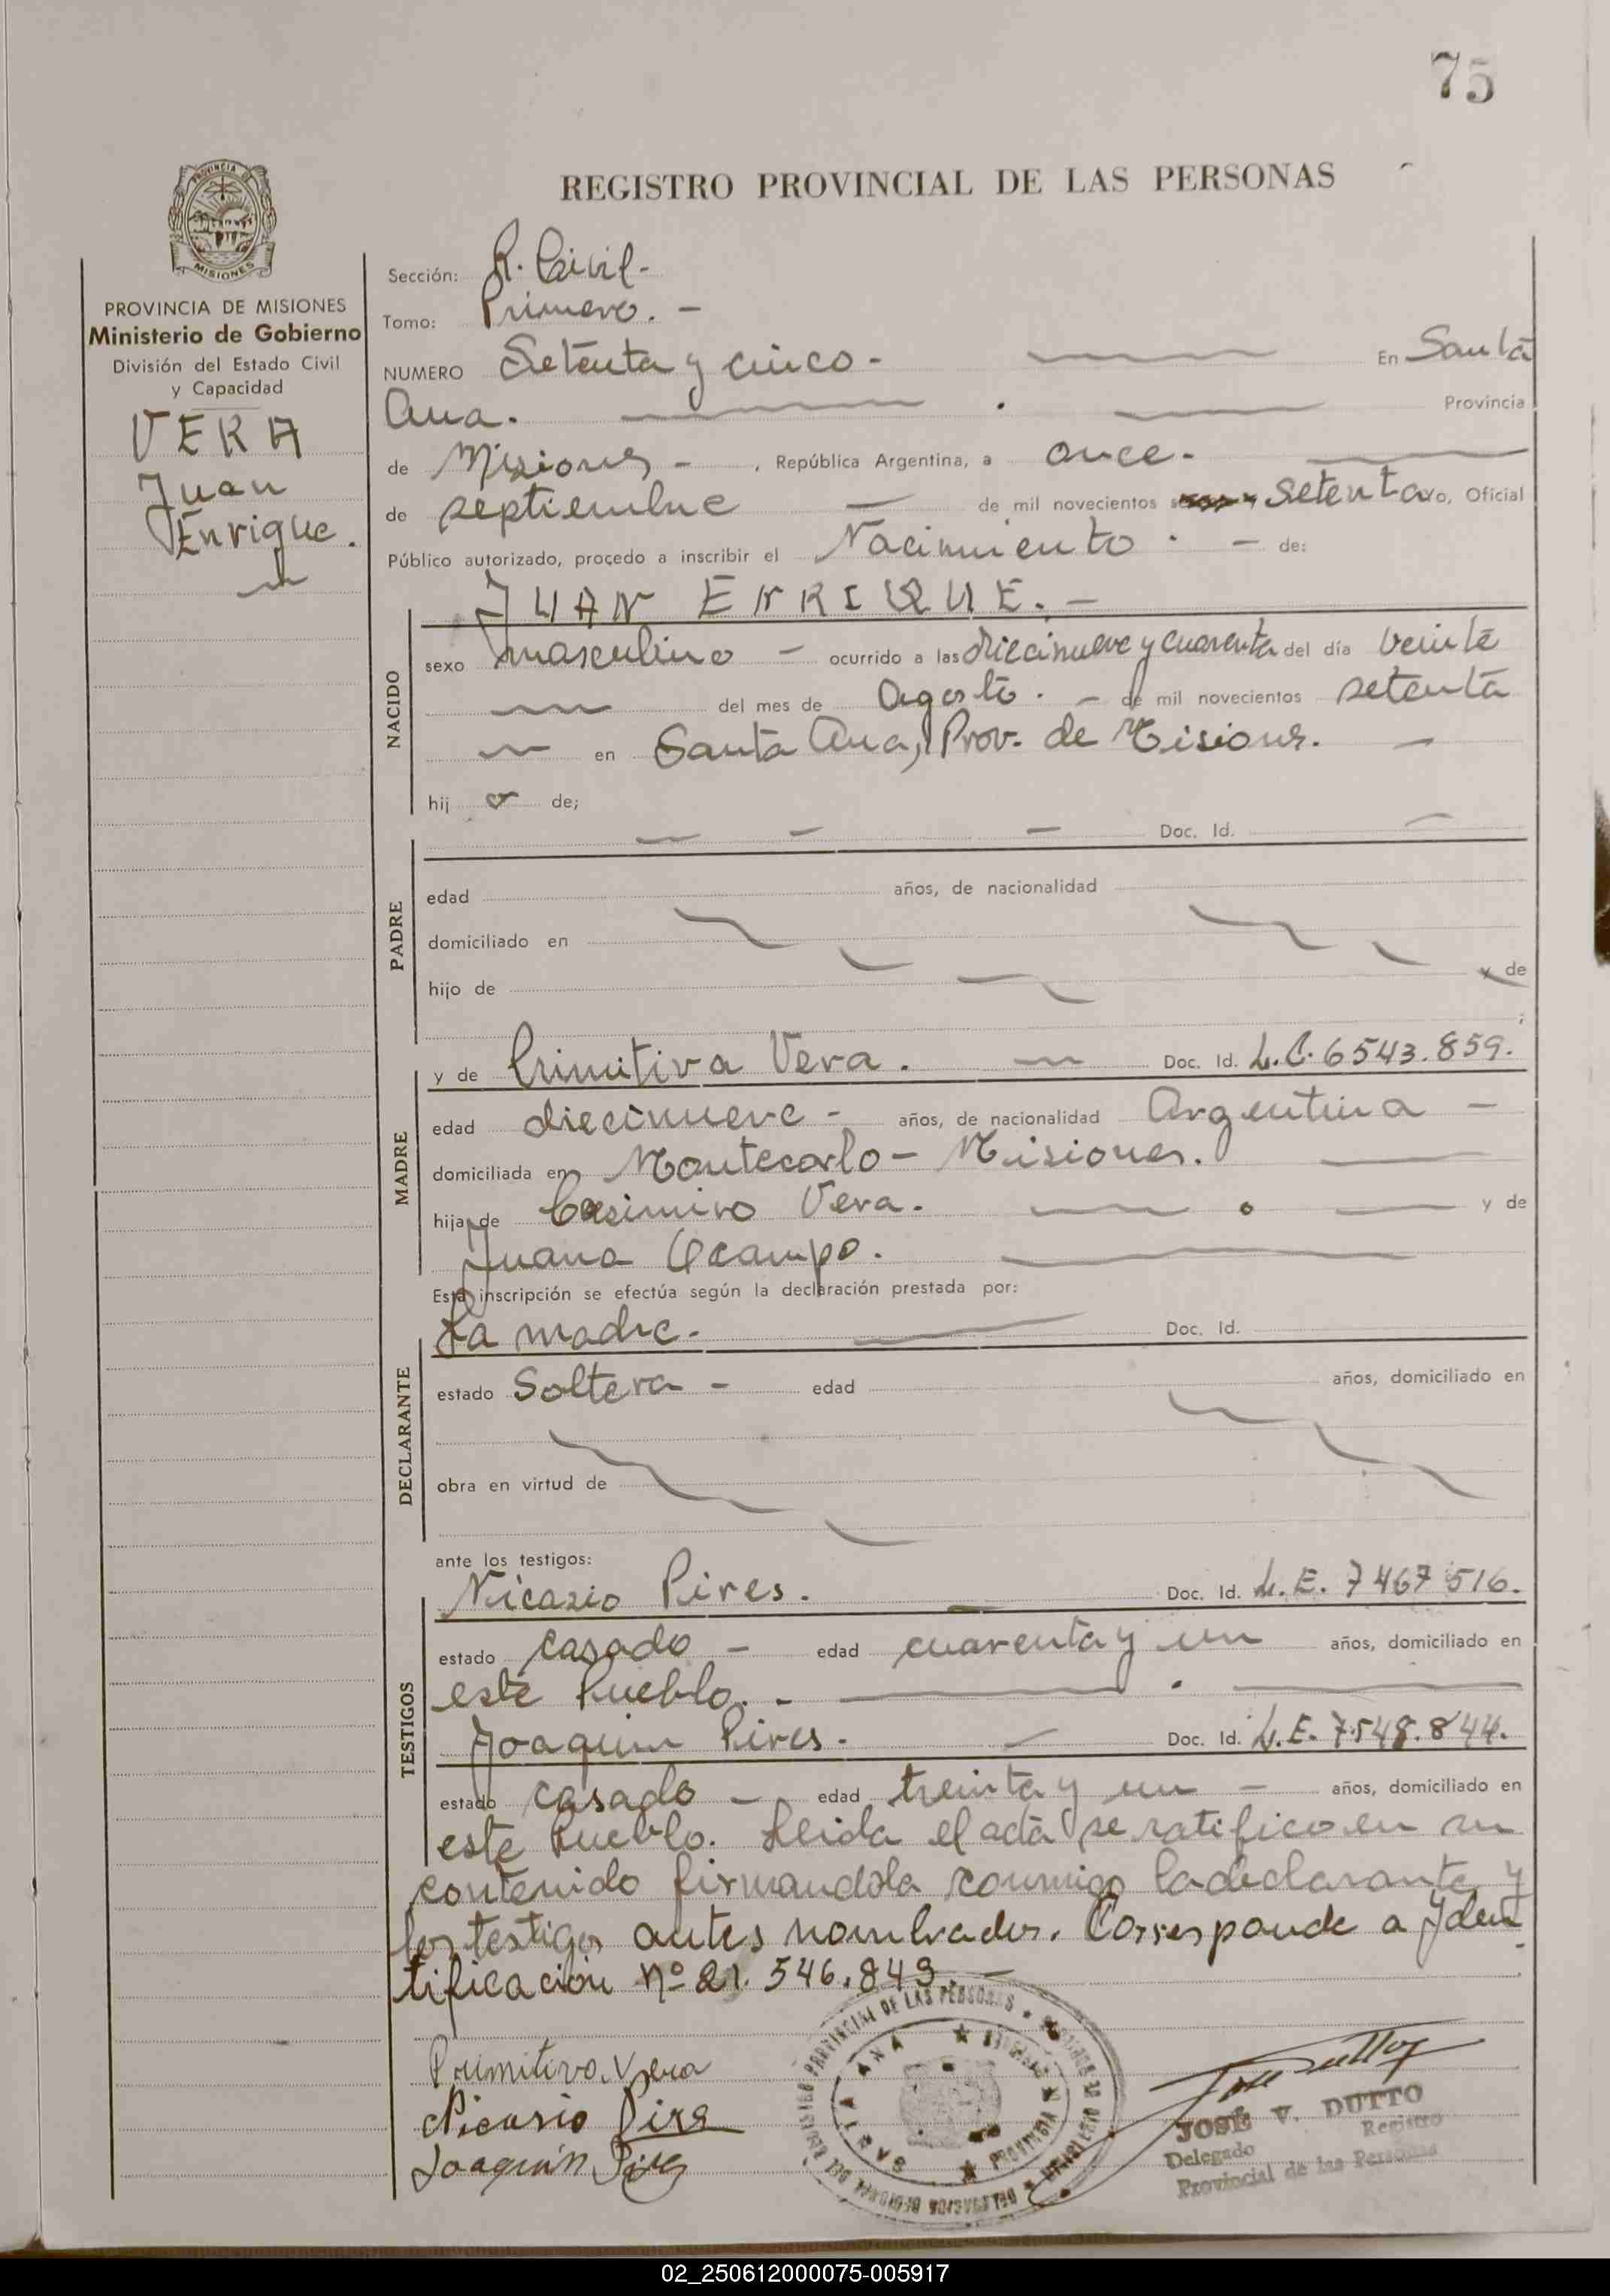 75
REGISTRO PROVINCIAL DE LAS PERSONAS
PROVINCIA DE
MISIONES
PROVINCIA DE MISIONES
Ministerio de Gobierno
División del Estado Civil
y Capacidad
VERA
Juan
Enrique.
Sección: R. Civil.-
Tomo: Primero. -
NUMERO Setenta y cinco - En Santa
Ana. - Provincia
de Misiones - , República Argentina, a once. -
de septiembre - de mil novecientos setenta yo, Oficial
Público autorizado, procedo a inscribir el Nacimiento. - de:
JUAN ENRIQUE. -
NACIDO
sexo masculino - ocurrido a las diecinueve y cuarenta del día veinte
del mes de Agosto. - de mil novecientos setenta
en Santa Ana, Prov. de Misiones. -
hij o de;
Doc. Id.
PADRE
edad años, de nacionalidad
domiciliado en
hijo de y de
;
y de Primitiva Vera. - Doc. Id. L.C. 6543.859.
MADRE
edad diecinueve - años, de nacionalidad Argentina -
domiciliada en Montecarlo - Misiones.
hija de Casimiro Vera. - y de
Juana Ocampo.
Esta inscripción se efectúa según la declaración prestada por:
La madre. Doc. Id.
DECLARANTE
estado Soltera - edad años, domiciliado en
obra en virtud de
ante los testigos:
Nicasio Pires. Doc. Id. L.E. 7467516.
TESTIGOS
estado casado - edad cuarenta y un años, domiciliado en
este Pueblo. -
Joaquim Pires. - Doc. Id. L.E. 7.548.844.
estado casado - edad treinta y un - años, domiciliado en
este Pueblo. Leida el acta se ratifico en su
contenido firmandola conmigo la declarante y
los testigos antes nombrados. Corresponde a Iden
tificación Nº 21.546.849. -
Primitiva Vera
Nicasio Pires
Joaquín Pires
REGISTRO PROVINCIAL DE LAS PERSONAS
SANTA ANA
PROVINCIA
JOSÉ V. DUTTO
Delegado Registro
Provincial de las Personas
02_250612000075-005917